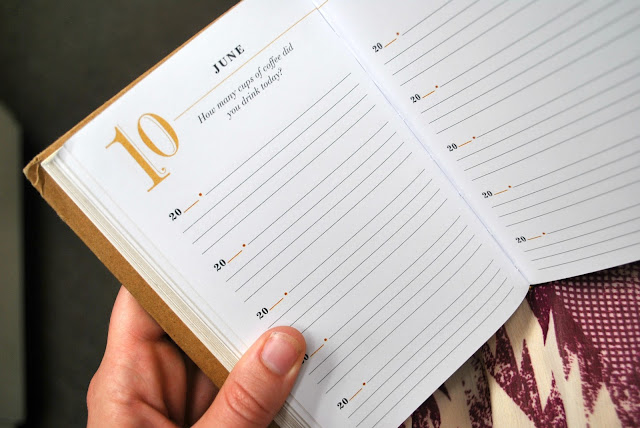 JUNE
10
How many cups of coffee did
you drink today?
20__.
20__.
20__.
20__.
20__.
20__.
20__.
20__.
20__.
20__.